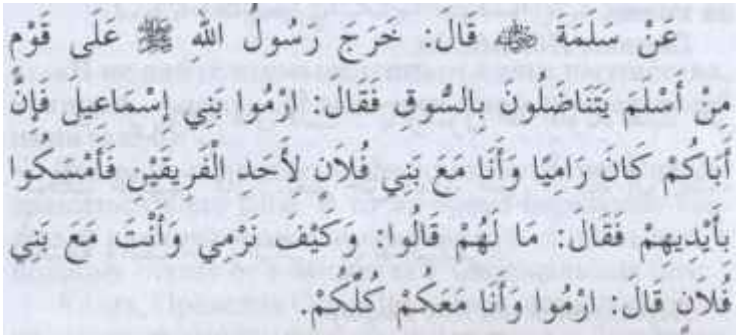 عَنْ سَلَمَةَ ﷺ قَالَ: خَرَجَ رَسُولُ اللهِ ﷺ عَلَى قَوْمٍ
مِنْ أَسْلَمَ يَتَنَاضَلُونَ بِالسُّوقِ فَقَالَ: ارْمُوا بَنِي إِسْمَاعِيلَ فَإِنَّ
أَبَاكُمْ كَانَ رَامِيًا وَأَنَا مَعَ بَنِي فُلَانٍ لِأَحَدِ الْفَرِيقَيْنِ فَأَمْسَكُوا
بِأَيْدِيهِمْ فَقَالَ: مَا لَهُمْ قَالُوا: وَكَيْفَ نَرْمِي وَأَنْتَ مَعَ بَنِي
فُلَانٍ قَالَ: ارْمُوا وَأَنَا مَعَكُمْ كُلِّكُمْ.